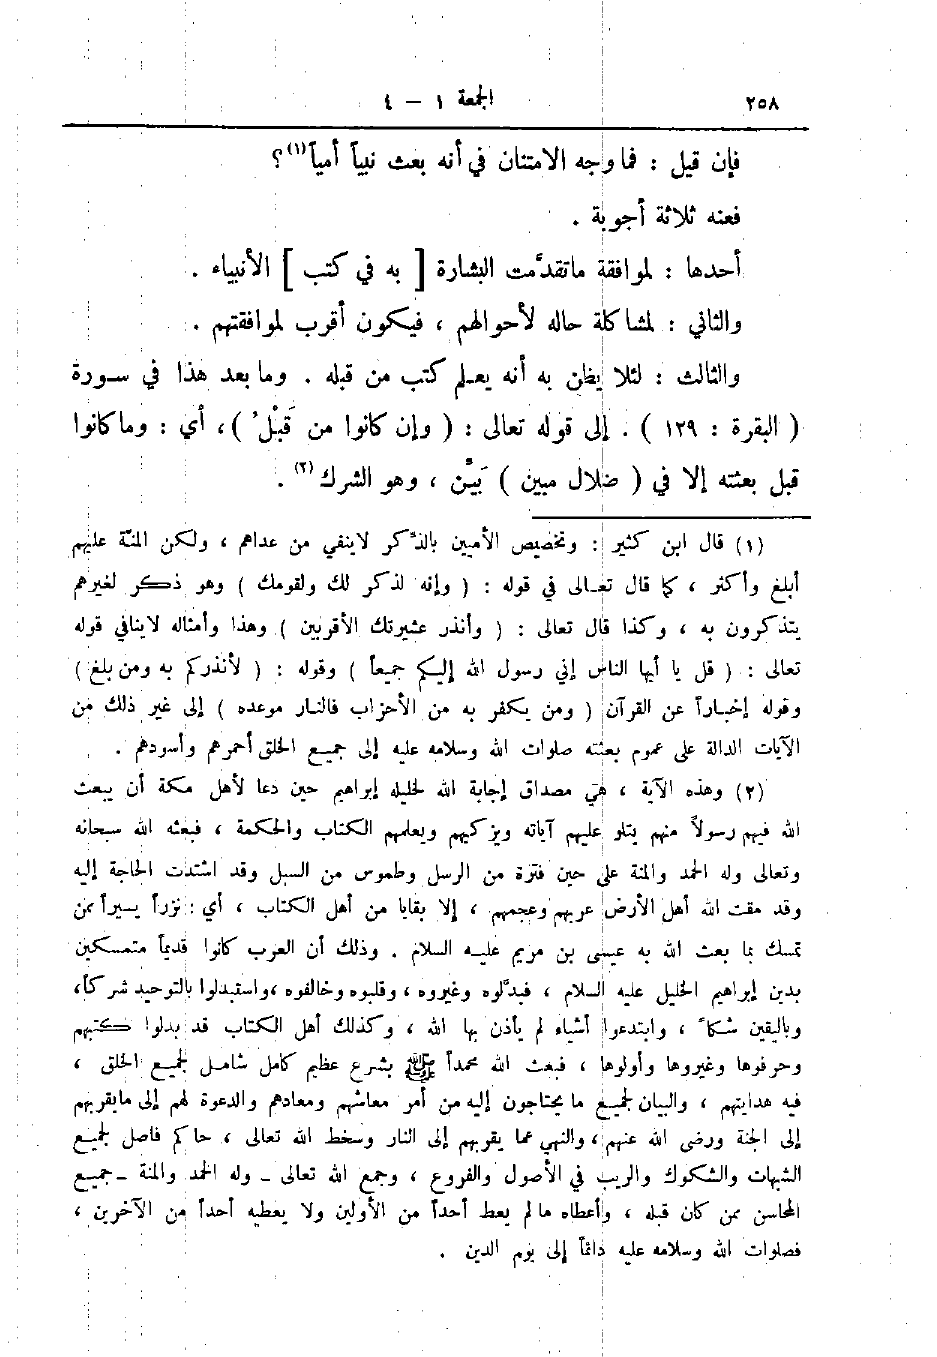 ٢٥٨
الجمعة ١ – ٤
فإن قيل : فما وجه الامتنان في أنه بعث نبياً أمياً(١)؟
فعنه ثلاثة أجوبة .
أحدها : لموافقة ماتقدَّمت البشارة [ به في كتب ] الأنبياء .
والثاني : لمشاكلة حاله لأحوالهم ، فيكون أقرب لموافقتهم .
والثالث : لئلا يظن به أنه يعلم كتب من قبله . وما بعد هذا في سورة
( البقرة : ١٢٩ ) . إلى قوله تعالى : ( وإن كانوا من قَبْلُ )، أي : وما كانوا
قبل بعثته إلا في ( ضلال مبين ) بَيِّن ، وهو الشرك (٢) .
(١) قال ابن كثير : وتخصيص الأميين بالذِّكر لاينفي من عداهم ، ولكن المنّة عليهم
أبلغ وأكثر ، كما قال تعالى في قوله : ( وإنه لذكر لك ولقومك ) وهو ذكر لغيرهم
يتذكرون به ، وكذا قال تعالى : ( وأنذر عشيرتك الأقربين ) وهذا وأمثاله لاينافي قوله
تعالى : ( قل يا أيها الناس إني رسول الله إليكم جميعاً ) وقوله : ( لأنذركم به ومن بلغ )
وقوله إخباراً عن القرآن ( ومن يكفر به من الأحزاب فالنار موعده ) إلى غير ذلك من
الآيات الدالة على عموم بعثته صلوات الله وسلامه عليه إلى جميع الخلق أحمرهم وأسودهم .
(٢) وهذه الآية ، هي مصداق إجابة الله لخليله إبراهيم حين دعا لأهل مكة أن يبعث
الله فيهم رسولاً منهم يتلو عليهم آياته ويزكيهم ويعلمهم الكتاب والحكمة ، فبعثه الله سبحانه
وتعالى وله الحمد والمنة على حين فترة من الرسل وطموس من السبل وقد اشتدت الحاجة إليه
وقد مقت الله أهل الأرض عربهم وعجمهم ، إلا بقايا من أهل الكتاب ، أي : نزراً يسيراً ممن
تمسك بما بعث الله به عيسى بن مريم عليه السلام . وذلك أن العرب كانوا قديماً متمسكين
بدين إبراهيم الخليل عليه السلام ، فبدَّلوه وغيروه ، وقلبوه وخالفوه ،واستبدلوا بالتوحيد شركاً،
وباليقين شكاً ، وابتدعوا أشياء لم يأذن بها الله ، وكذلك أهل الكتاب قد بدلوا كتبهم
وحرفوها وغيروها وأولوها ، فبعث الله محمداً ﷺ بشرع عظيم كامل شامل لجميع الخلق ،
فيه هدايتهم ، والبيان لجميع ما يحتاجون إليه من أمر معاشهم ومعادهم والدعوة لهم إلى مايقربهم
إلى الجنة ورضى الله عنهم ، والنهي عما يقربهم إلى النار وسخط الله تعالى ، حاكم فاصل لجميع
الشبهات والشكوك والريب في الأصول والفروع ، وجمع الله تعالى ـ وله الحمد والمنة ـ جميع
المحاسن ممن كان قبله ، وأعطاه مالم يعط أحداً من الأولين ولا يعطيه أحداً من الآخرين ،
فصلوات الله وسلامه عليه دائماً إلى يوم الدين .